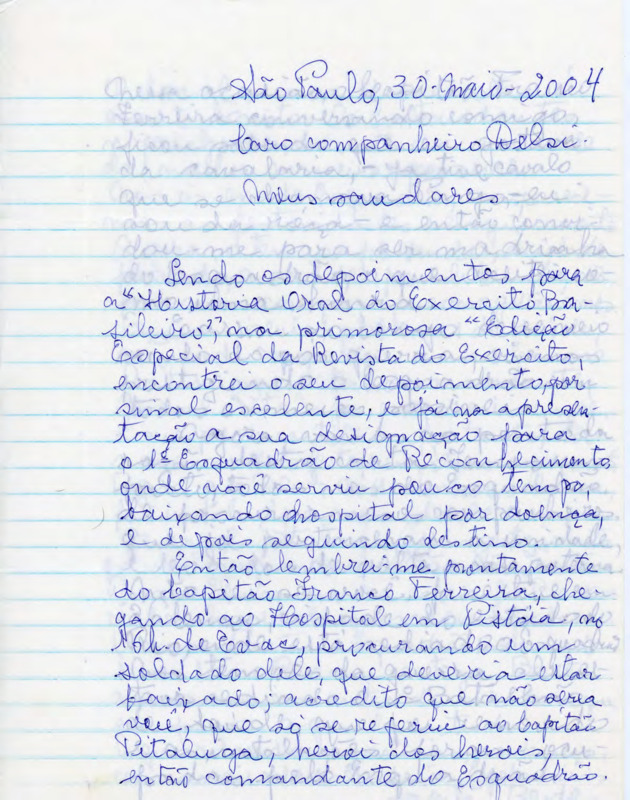 São Paulo, 30-Maio-2004
Caro companheiro Delsi.
Meus saudares
Lendo os depoimentos para
a "História Oral do Exercito Bra-
sileiro", na primorosa "Edição
Especial da Revista do Exercito,
encontrei o seu depoimento, por
sinal escelente, e já na apresen-
tação a sua designação para
o 1º Esquadrão de Reconhecimento
onde você serviu pouco tempo,
baixando hospital por doença,
e depois seguindo destino.
Então lembrei-me prontamente
do Capitão Franco Ferreira, che-
gando ao Hospital em Pistóia, no
16h. de Evac, procurando um
soldado dele, que deveria estar
baixado; acredito que não seria
você, que só se referiu ao Capitão
Pitaluga, herois dos herois,
então comandante do Esquadrão.